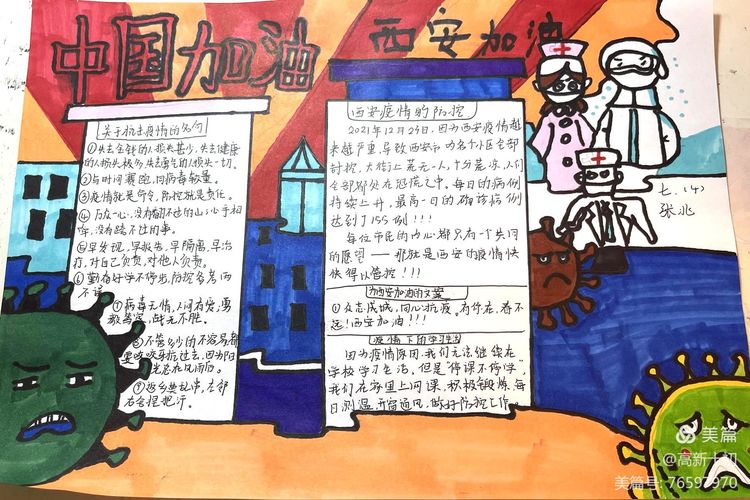 中国加油
西安加油
关于抗击疫情的名句
①失去金钱的人损失甚少,失去健康
的人损失极多,失去勇气的人损失一切。
②与时间赛跑,同病毒较量。
③疫情就是命令,防控就是责任。
④万众一心,没有翻不过的山;心手相
牵,没有跨不过的事。
⑤早发现,早报告,早隔离,早治
疗,对自己负责,对他人负责。
⑥勤有好学不停步,防控
不
①病毒无情,人间有爱,勇
敢,战无不胜。
②不管多少的不容易都
要咬咬牙抗过去,因为阳
光总在风雨后。
⑦
西安疫情的防控
2021年12月24日,因为西安疫情越
来越严重,导致西安市的各个小区全部
封控,大街上荒无一人,十分荒凉,人们
全部都处在恐慌之中。每日的病例
持续上升,最高一日的确诊病例
达到了155例!!!
每位市民的内心都只有一个共同
的愿望——那就是西安的疫情快
快得以管控!!!
为西安加油的文案
①众志成城,同心抗疫。有你在,春不
远!西安加油!!!
疫情下的学习生活
因为疫情原因,我们无法继续在
学校学习生活,但是“停课不停学”,
我们在家里上网课,积极锻炼,每
日测温,开窗通风,做好防控工作。
七.(4)
张兆
美篇
@高新十初
美篇号:76597970